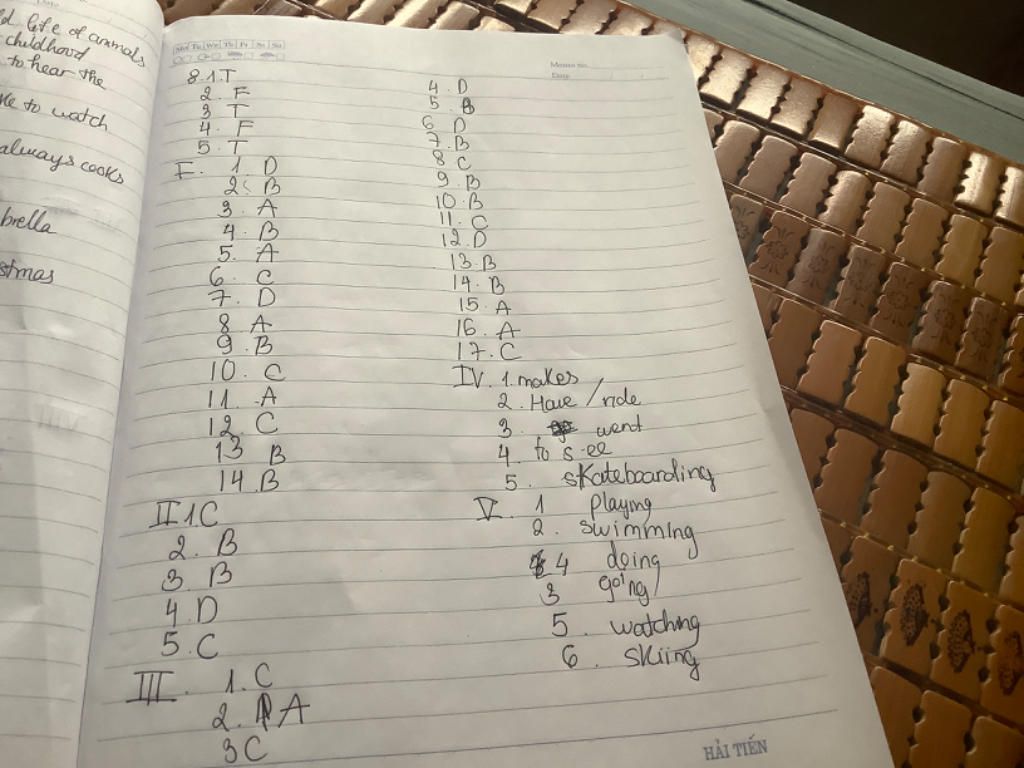 ld life of animals
childhood
to hear the
ke to watch
always cooks
brella
stmas
Mo Tu We Th Fr Sa Su
Memo No.
Date
8.1.T
2. F
3 T
4. F
5. T
I. 1. D
2. B
3. A
4. B
5. A
6. C
7. D
8 A
9. B
10. C
11. A
12. C
13 B
14. B
II 1. C
2. B
3. B
4. D
5. C
III. 1. C
2. A
3 C
4. D
5. B
6. D
7. B
8. C
9. B
10. B
11. C
12. D
13. B
14. B
15. A
16. A
17. C
IV. 1. makes
2. Have / ride
3. went
4. to s.ee
5. skateboarding
V. 1 playing
2. swimming
4 doing
3 going
5. watching
6. skiing
HẢI TIẾN